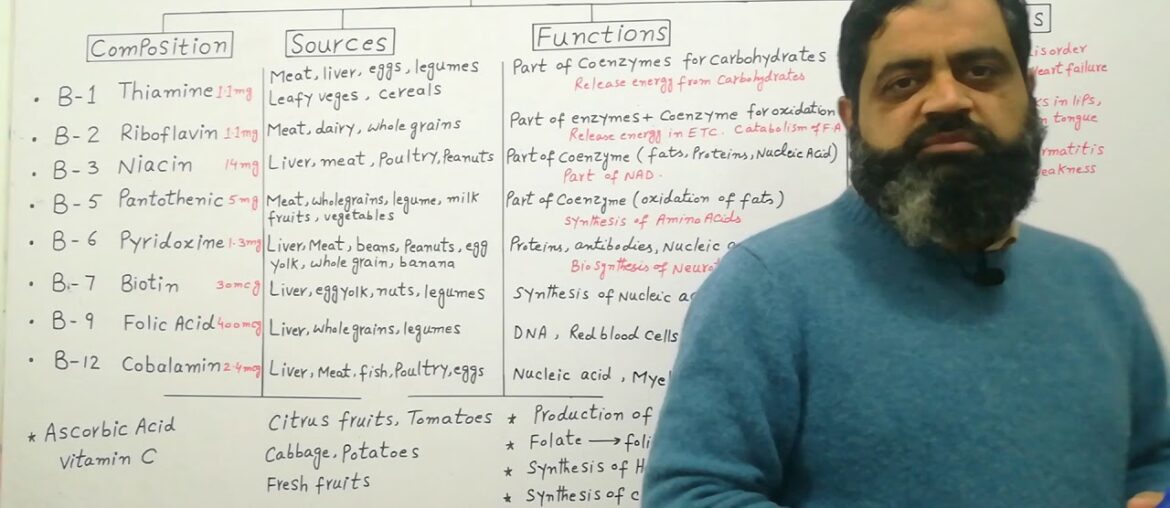 Composition
Sources
Functions
S
• B-1 Thiamine 1.1mg
Meat, liver, eggs, legumes
Leafy veges, cereals
Part of Coenzymes for Carbohydrates
Release energy from Carbohydrates
isorder
Heart failure
• B-2 Riboflavin 1.1mg
Meat, dairy, whole grains
Part of enzymes + Coenzyme for oxidation
Release energy in ETC. Catabolism of F.A
ks in lips,
n tongue
• B-3 Niacin 14mg
Liver, meat, Poultry, Peanuts
Part of Coenzyme (fats, Proteins, Nucleic Acid)
Part of NAD.
rmatitis
weakness
• B-5 Pantothenic 5mg
Meat, wholegrains, legume, milk
fruits, vegetables
Part of Coenzyme (oxidation of fats)
Synthesis of Amino Acids
• B-6 Pyridoxine 1.3mg
Liver, Meat, beans, Peanuts, egg
yolk, whole grain, banana
Proteins, antibodies, Nucleic a
Biosynthesis of Neurot
• B-7 Biotin 30mcg
Liver, egg yolk, nuts, legumes
Synthesis of Nucleic ac
• B-9 Folic Acid 400mcg
Liver, whole grains, legumes
DNA, Red blood cells
• B-12 Cobalamin 2.4mcg
Liver, Meat, fish, Poultry, eggs
Nucleic acid, Myel
* Ascorbic Acid
Vitamin C
Citrus fruits, Tomatoes
Cabbage, Potatoes
Fresh fruits
* Production of
* Folate → foli
* Synthesis of H
* Synthesis of c